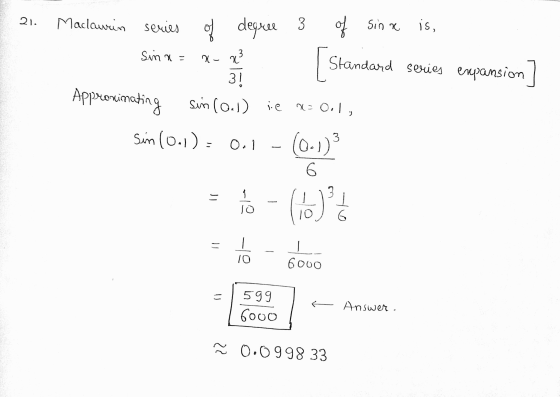 21. Maclaurin series of degree 3 of Sin x is,
Sin x = x - x³/3! [Standard series expansion]
Approximating sin(0.1) i.e x = 0.1,
Sin(0.1) = 0.1 - (0.1)³/6
= 1/10 - (1/10)³ 1/6
= 1/10 - 1/6000
= 599/6000 ← Answer.
≈ 0.099833